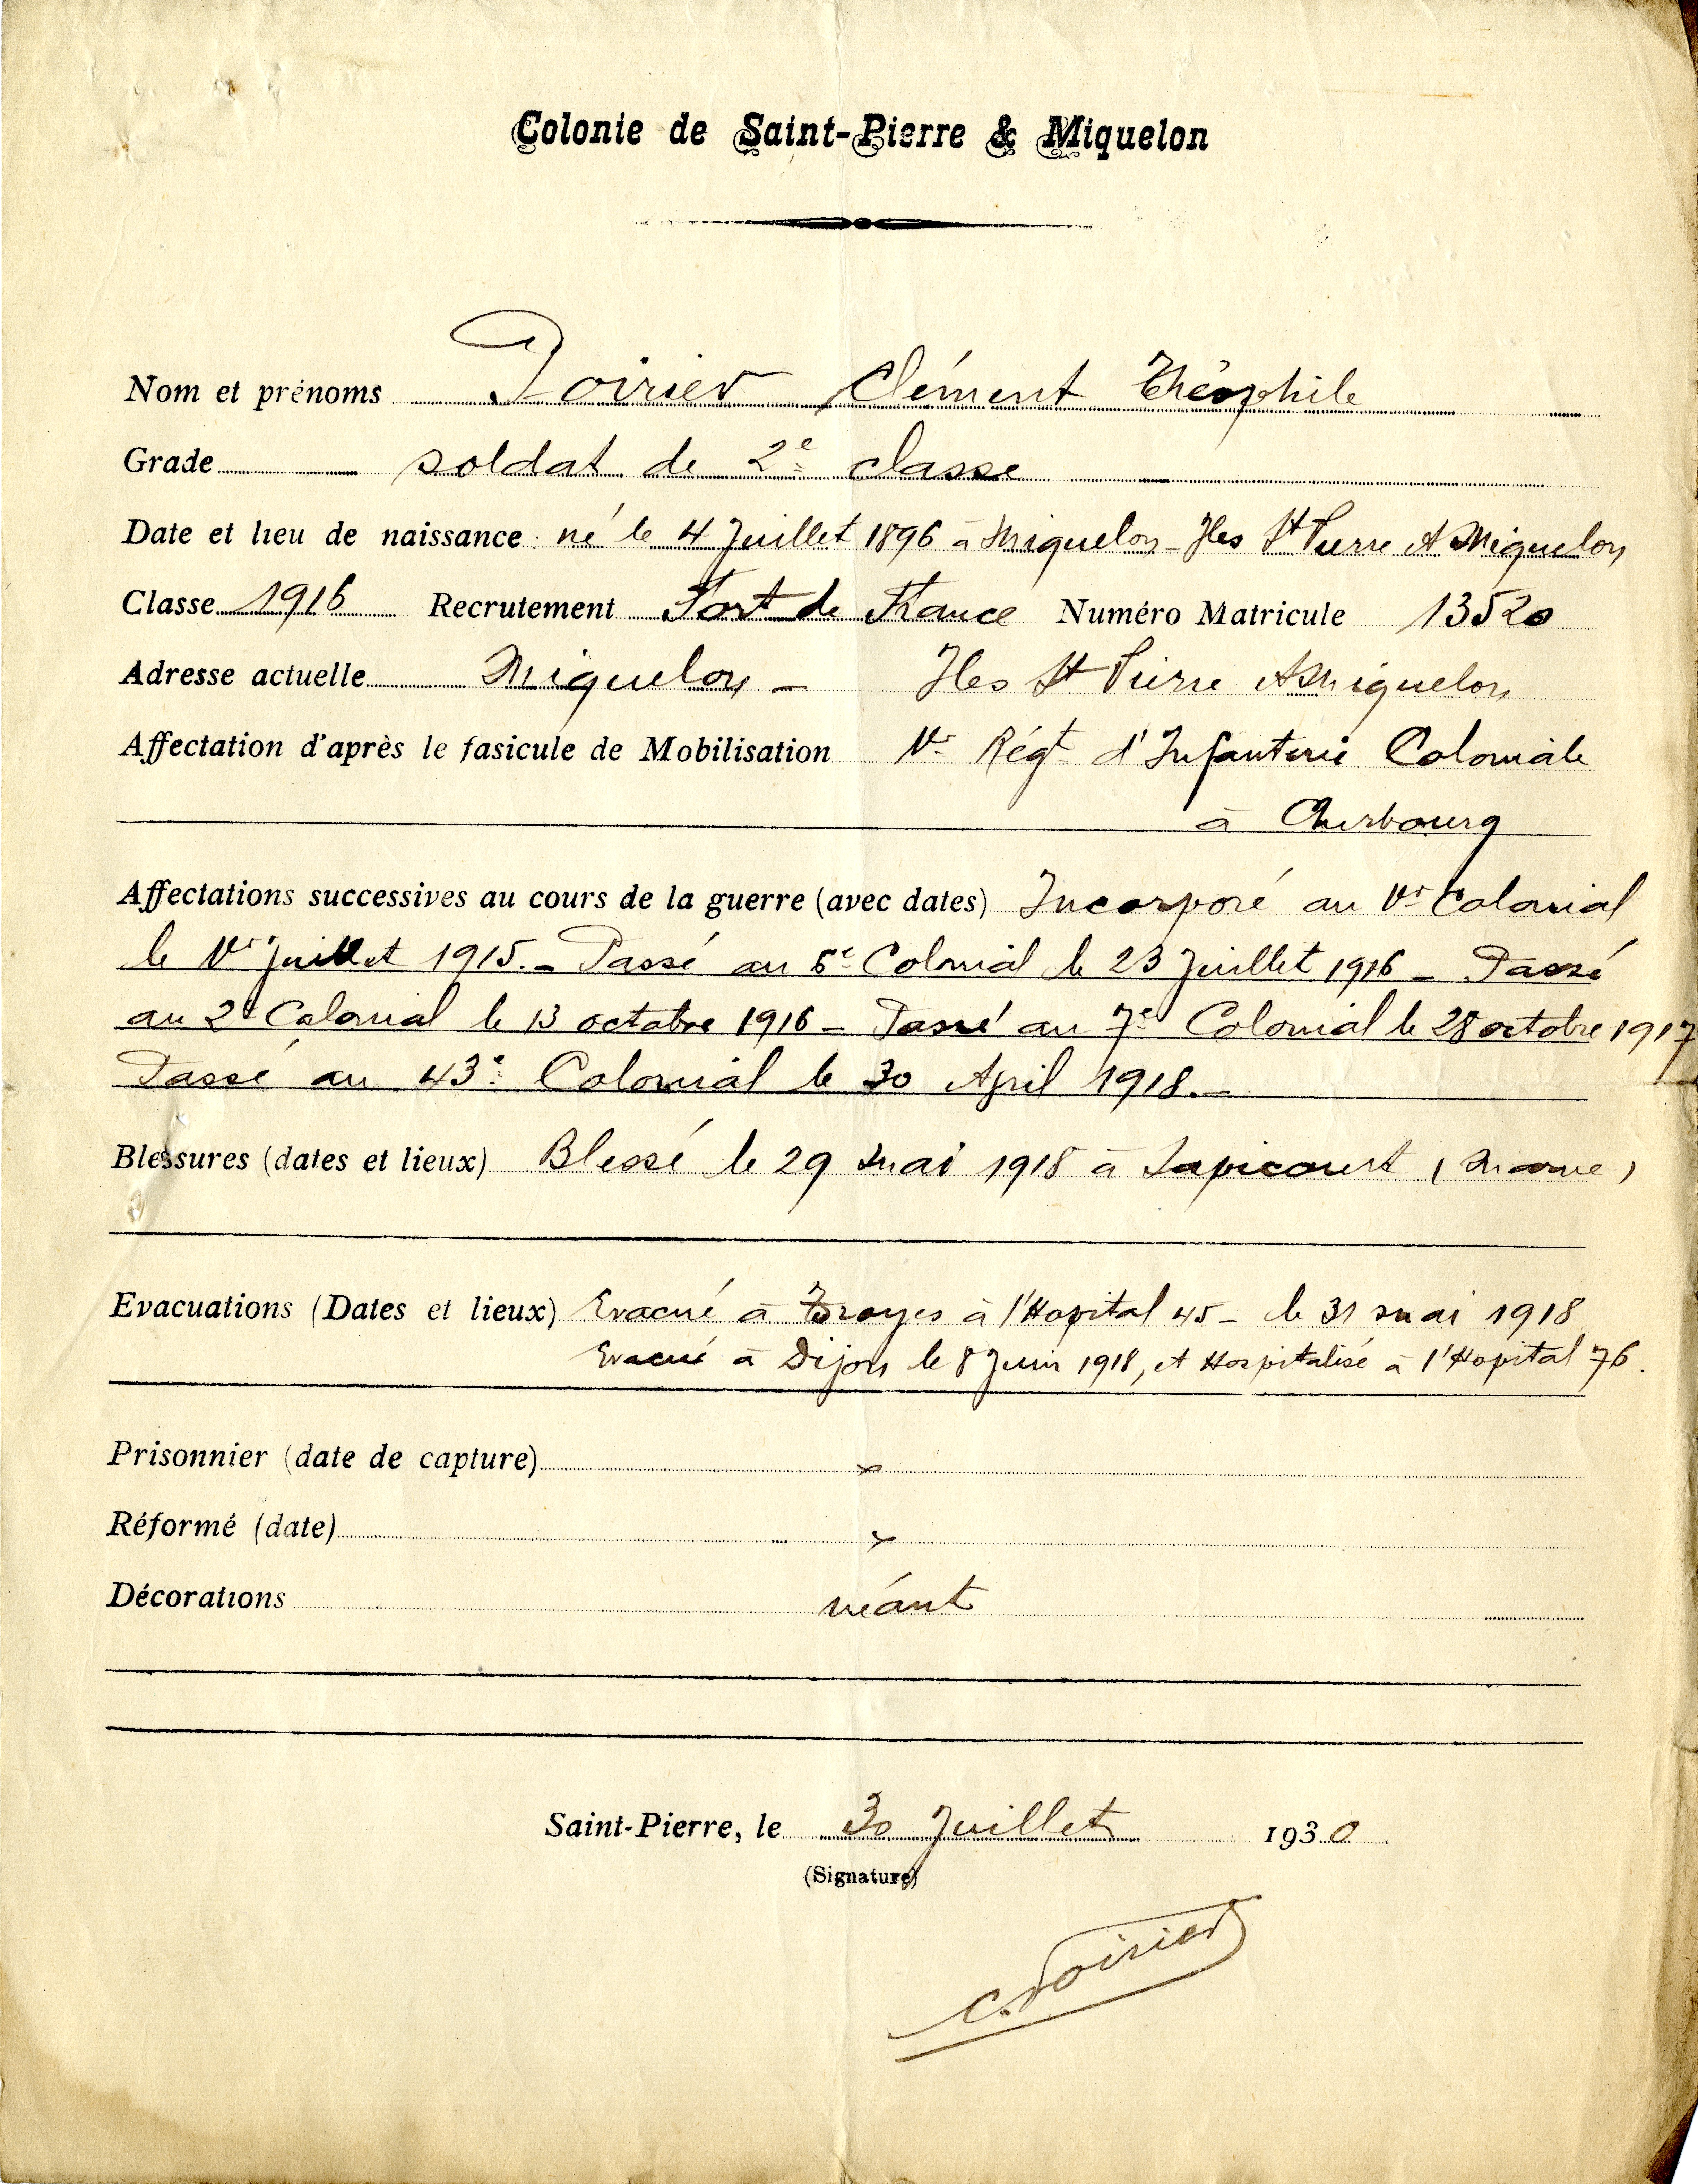 Colonie de Saint-Pierre & Miquelon
Nom et prénoms Poirier Clément Théophile
Grade soldat de 2e classe
Date et lieu de naissance : né le 4 Juillet 1896 à Miquelon - Iles St Pierre et Miquelon
Classe 1916 Recrutement Fort de France Numéro Matricule 13520
Adresse actuelle Miquelon - Iles St Pierre et Miquelon
Affectation d'après le fasicule de Mobilisation 1er Régt d'Infanterie Coloniale
à Cherbourg
Affectations successives au cours de la guerre (avec dates) Incorporé au 1er Colonial
le 1er Juillet 1915. - Passé au Colonial le 23 Juillet 1916 - Passé
au 2e Colonial le 13 octobre 1916 - Passé au 7e Colonial le 28 octobre 1917
Passé au 43e Colonial le 30 April 1918. -
Blessures (dates et lieux) Blessé le 29 mai 1918 à Japicourt (Marne)
Evacuations (Dates et lieux) Evacué à Troyes à l'Hopital 45 - le 31 mai 1918
Evacué à Dijon le 8 Juin 1918, et Hospitalisé à l'Hopital 76.
Prisonnier (date de capture) x
Réformé (date) x
Décorations néant
Saint-Pierre, le 30 Juillet 1930
(Signature)
C. Poirier